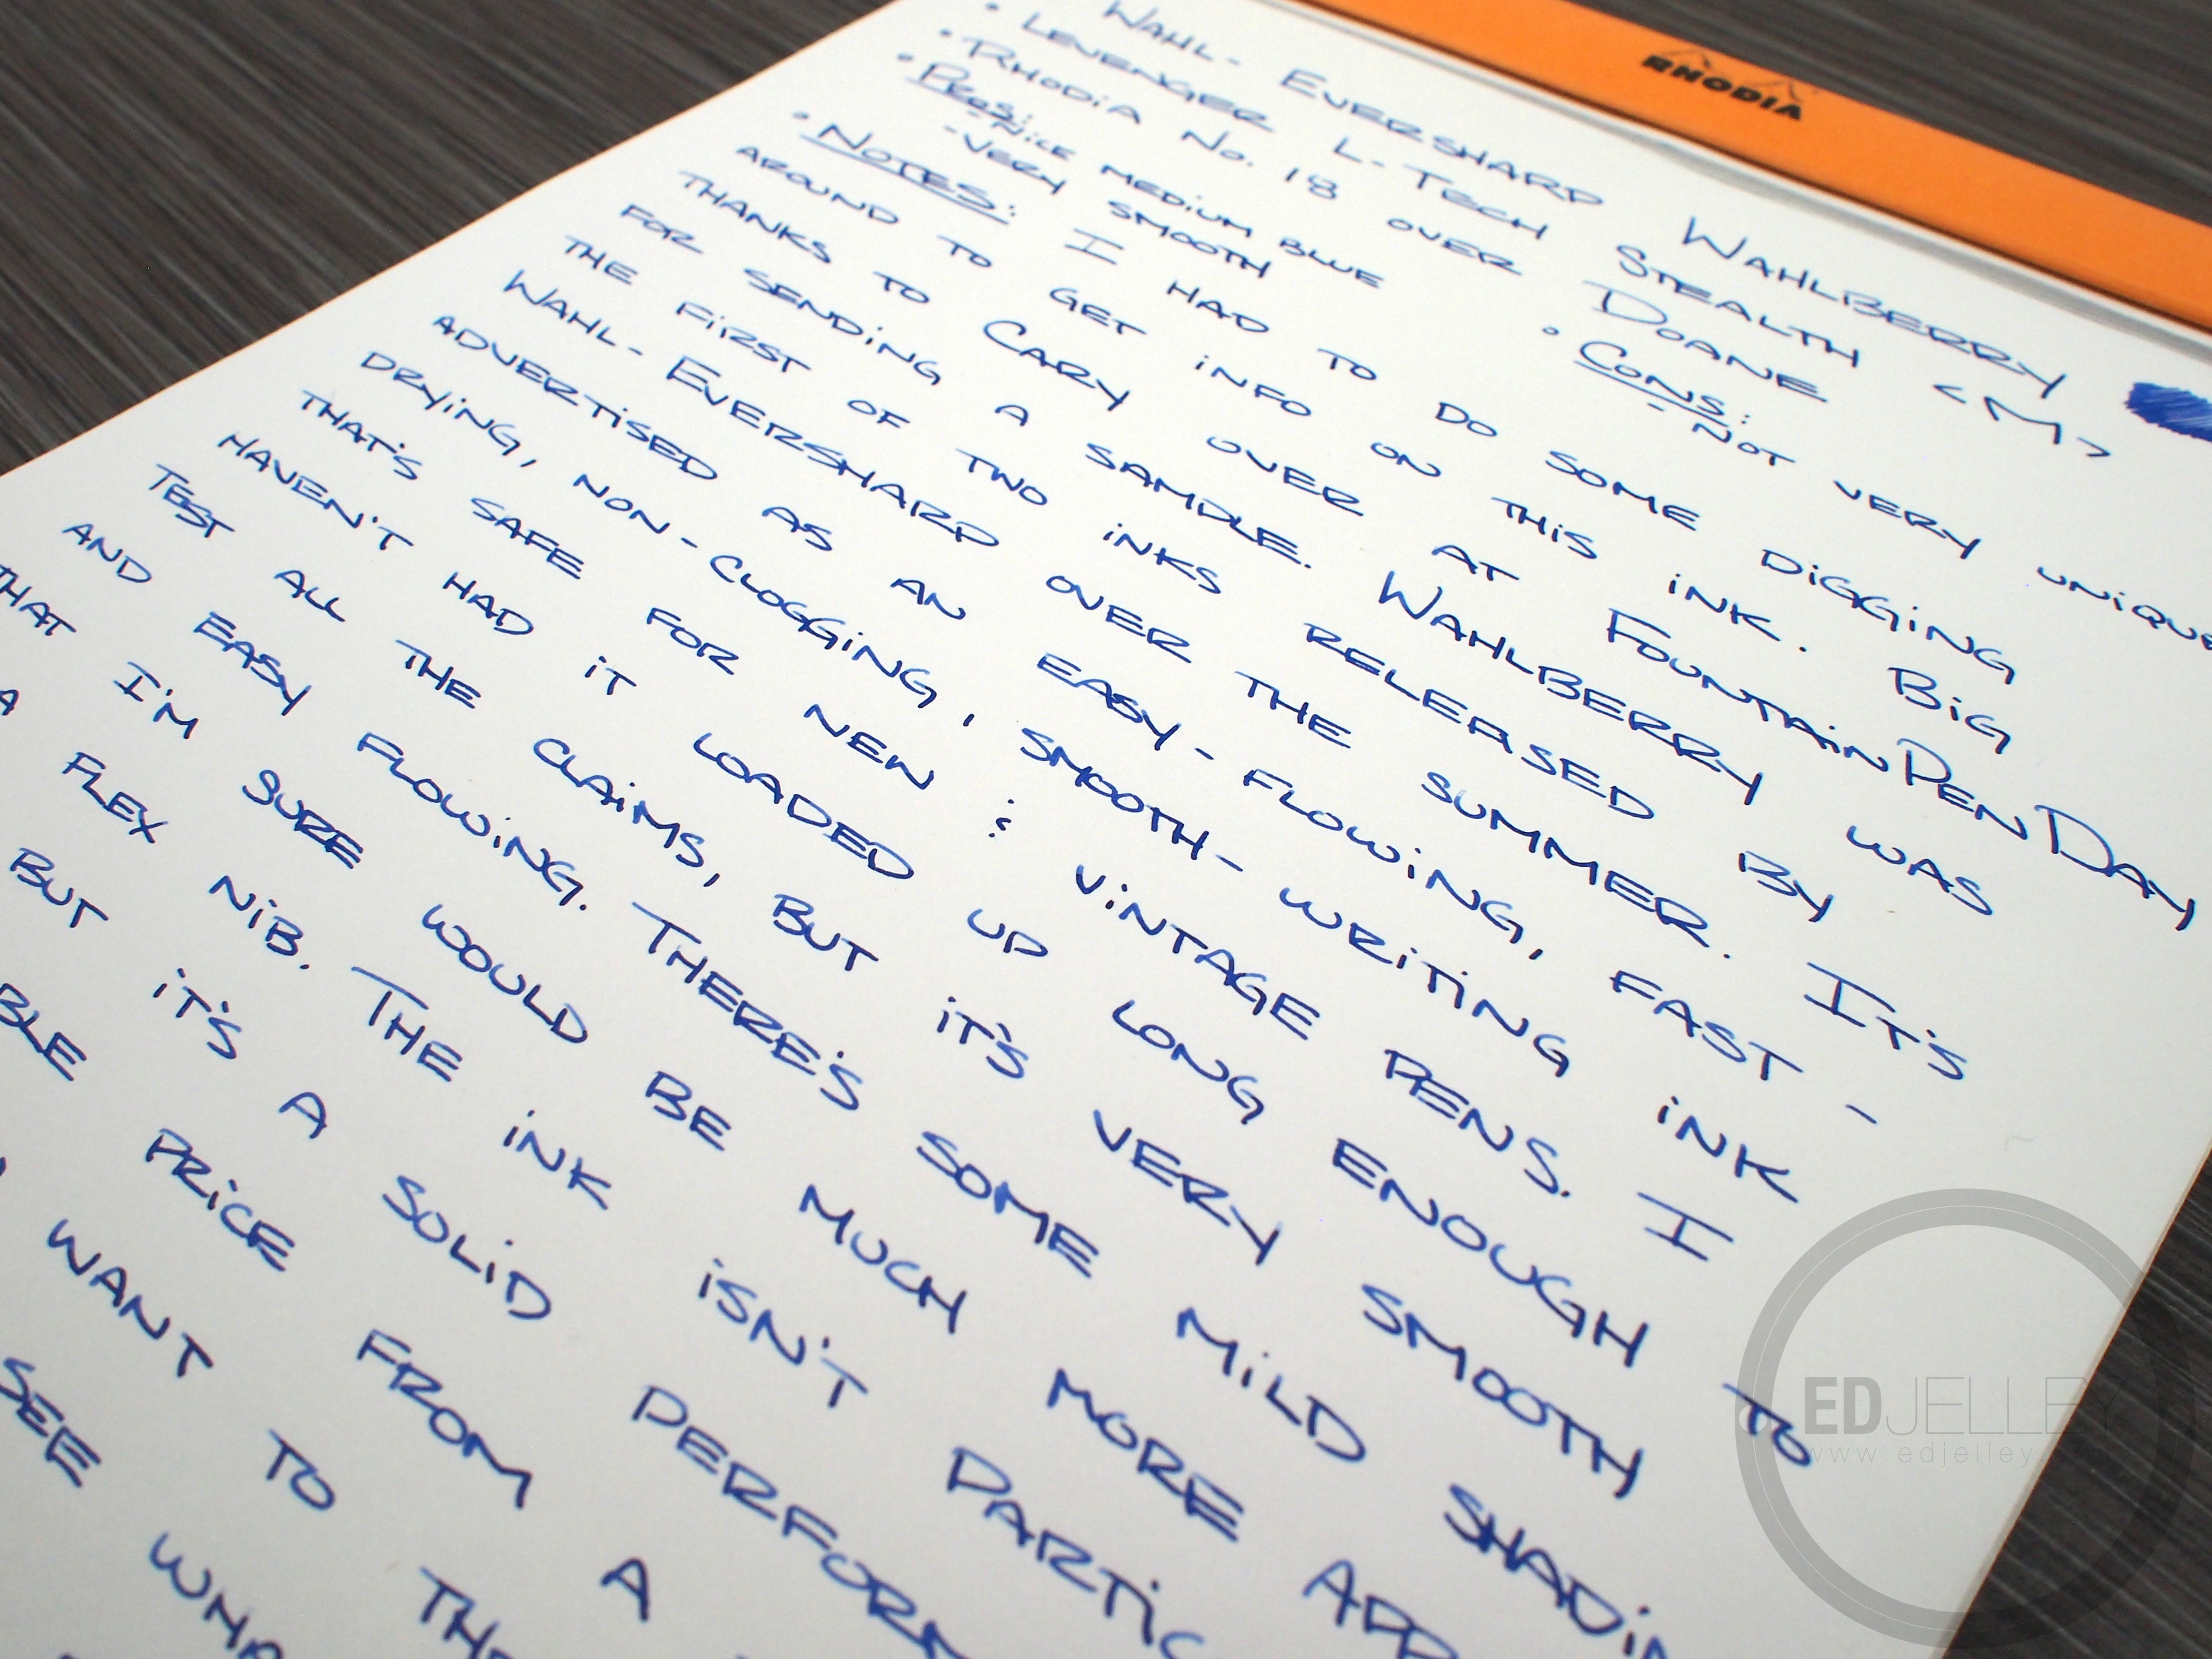 RHODIA
WAHL- EVERSHARP WAHLBERRY
• LEVENGER L-TECH STEALTH <M>
• RHODIA No. 18 OVER DOANE
• PROS: • CONS:
- NICE MEDIUM BLUE - NOT VERY UNIQUE
- VERY SMOOTH
• NOTES: I HAD TO DO SOME DIGGING
AROUND TO GET INFO ON THIS INK. BIG
THANKS TO CARY OVER AT FOUNTAINPENDAY
FOR SENDING A SAMPLE. WAHLBERRY WAS
THE FIRST OF TWO INKS RELEASED BY
WAHL-EVERSHARP OVER THE SUMMER. IT'S
ADVERTISED AS AN EASY-FLOWING, FAST-
DRYING, NON-CLOGGING, SMOOTH-WRITING INK
THAT'S SAFE FOR NEW & VINTAGE PENS. I
HAVEN'T HAD IT LOADED UP LONG ENOUGH TO
TEST ALL THE CLAIMS, BUT IT'S VERY SMOOTH
AND EASY FLOWING. THERE'S SOME MILD SHADIN
THAT I'M SURE WOULD BE MUCH MORE APP
A FLEX NIB. THE INK ISN'T PARTIC
BUT IT'S A SOLID PERFORM
BLE PRICE FROM A
WANT TO THE
SEE WHA
EDJELLEY
www.edjelley